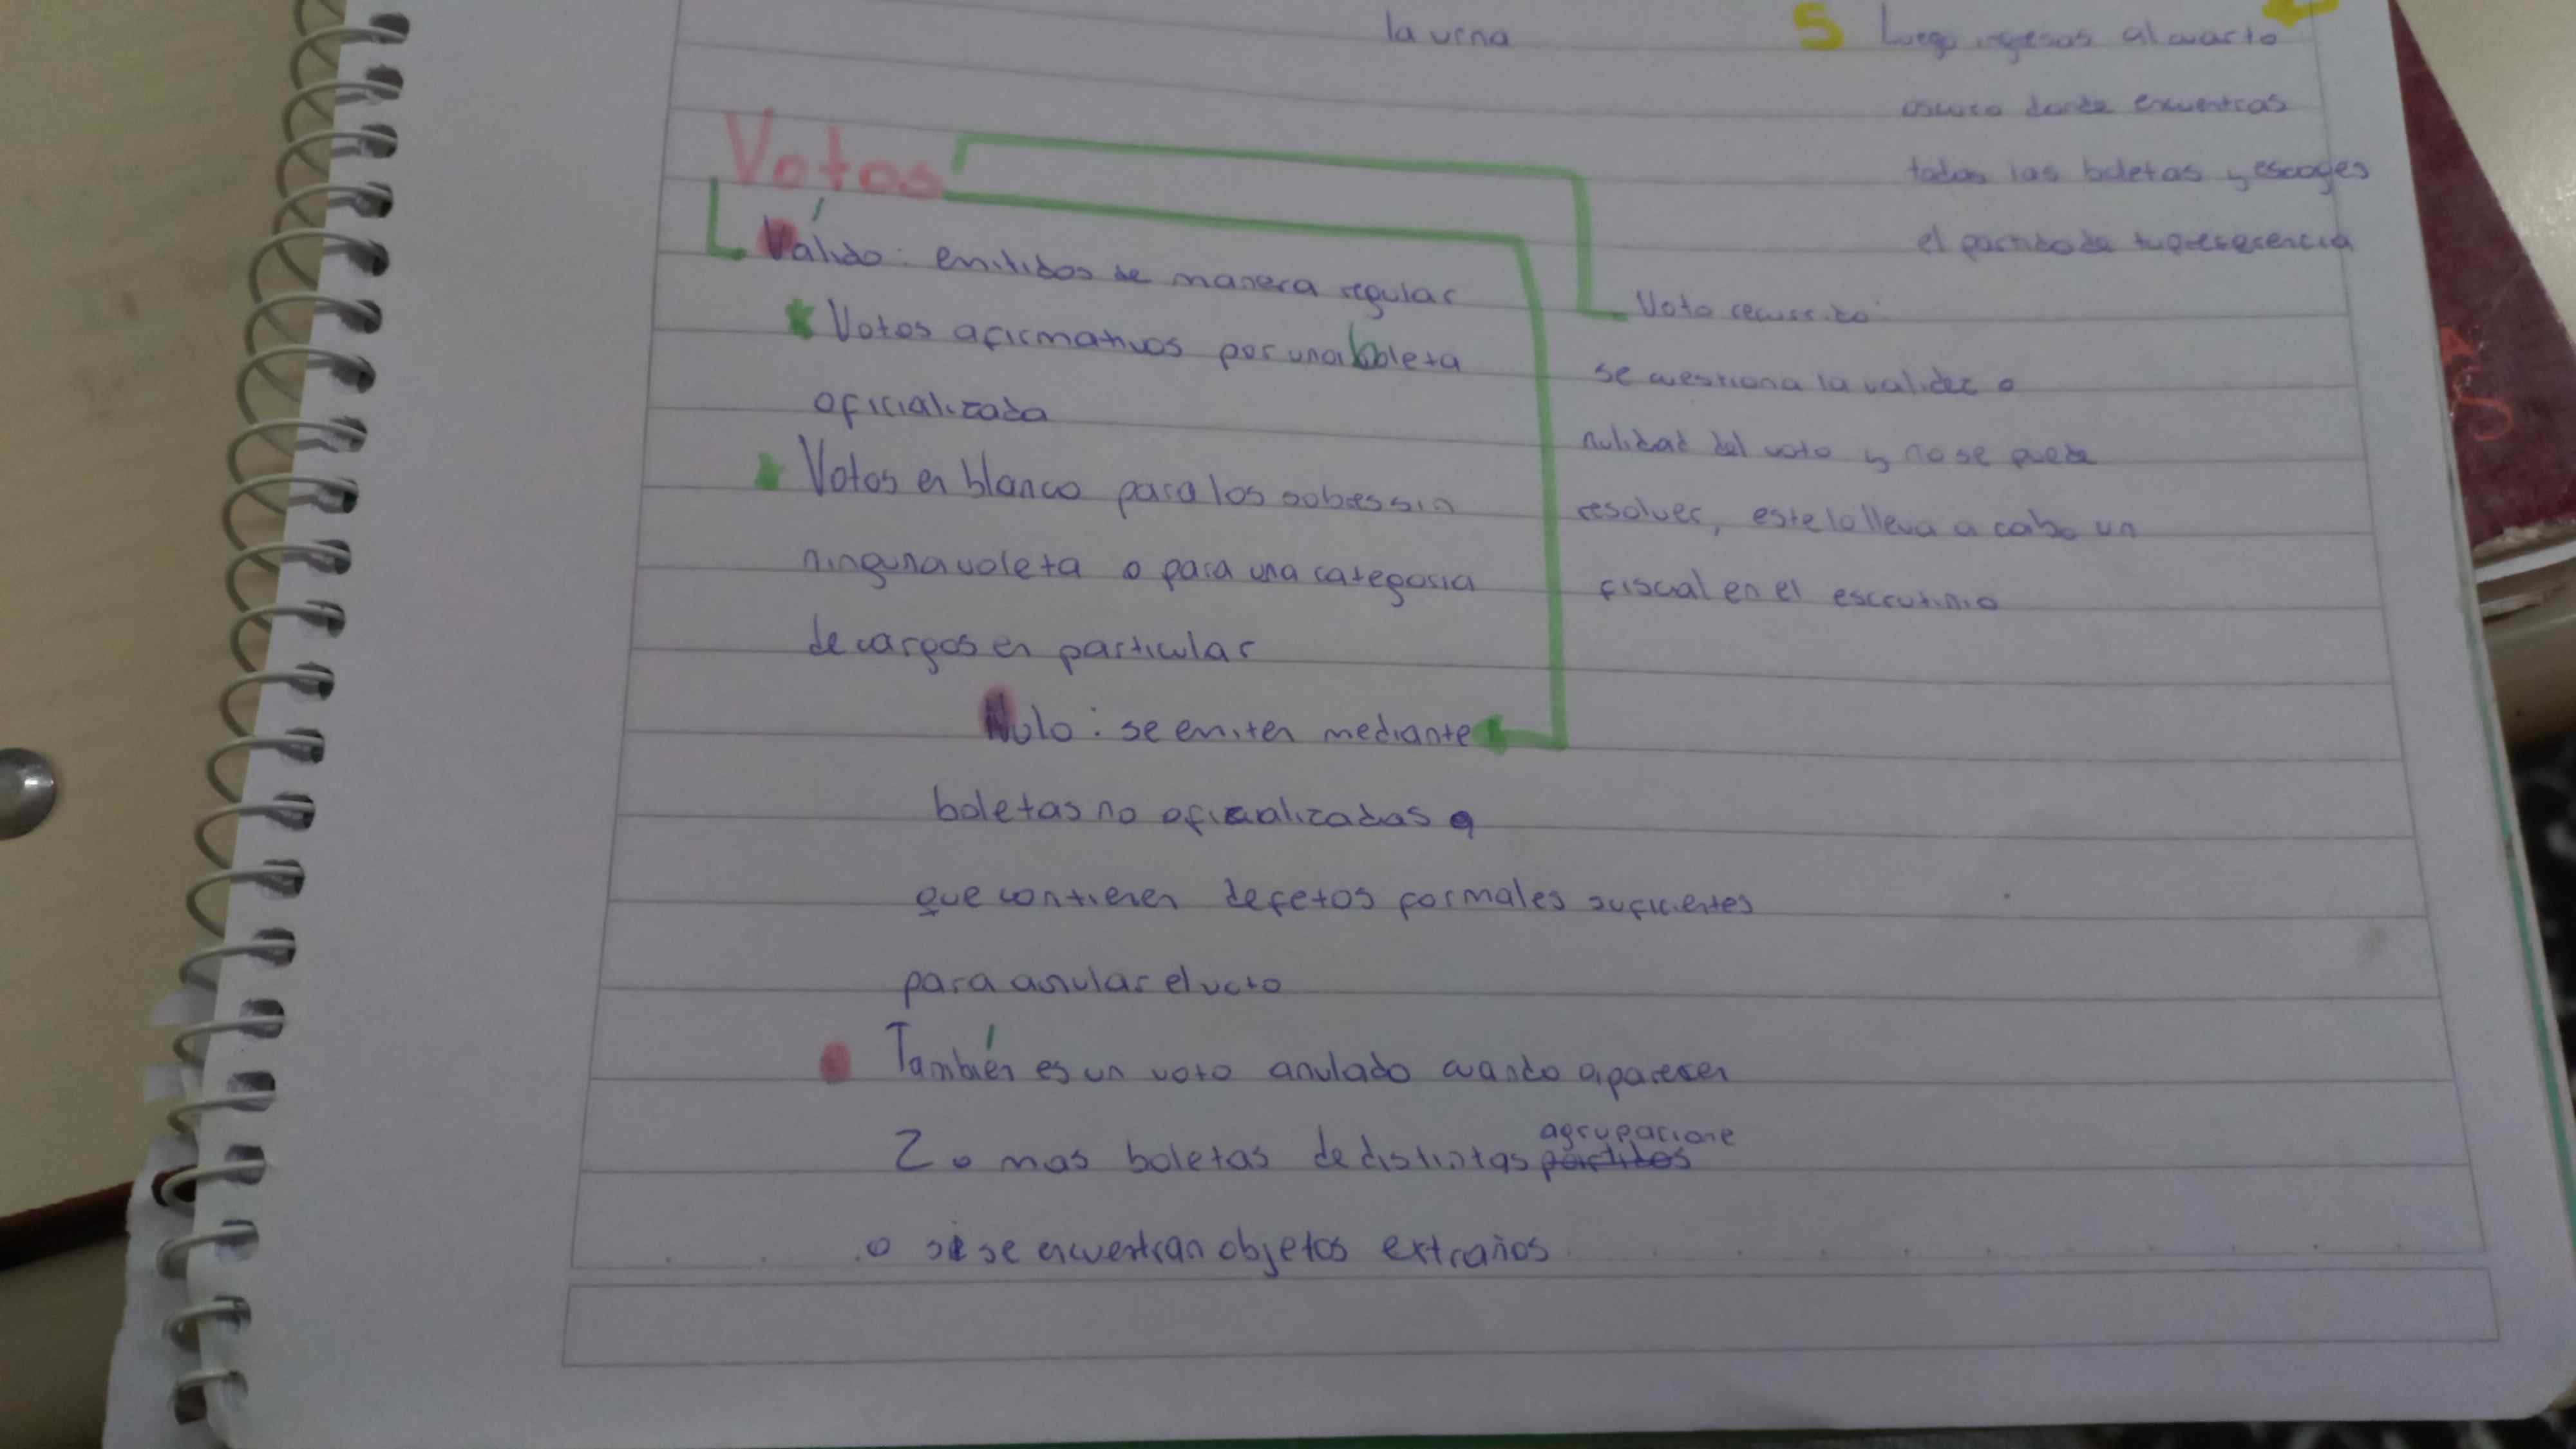 la urna
5 Luego ingresas al cuarto
oscuro donde encuentras
todas las boletas y escoges
el partido de tu preferencia
Votos
Válido: emitidos de manera regular
* Votos afirmativos por una boleta
oficializada
Votos en blanco para los sobres sin
ninguna voleta o para una categoria
de cargos en particular
Nulo: se emiten mediante
boletas no oficializadas o
que contienen defetos formales suficientes
para anular el voto
También es un voto anulado cuando aparecen
2 o mas boletas de distintas partidos agrupacione
o si se encuentran objetos extraños
Voto recurrido:
se cuestiona la validez o
nulidad del voto y no se puede
resolver, este lo lleva a cabo un
fiscal en el escrutinio